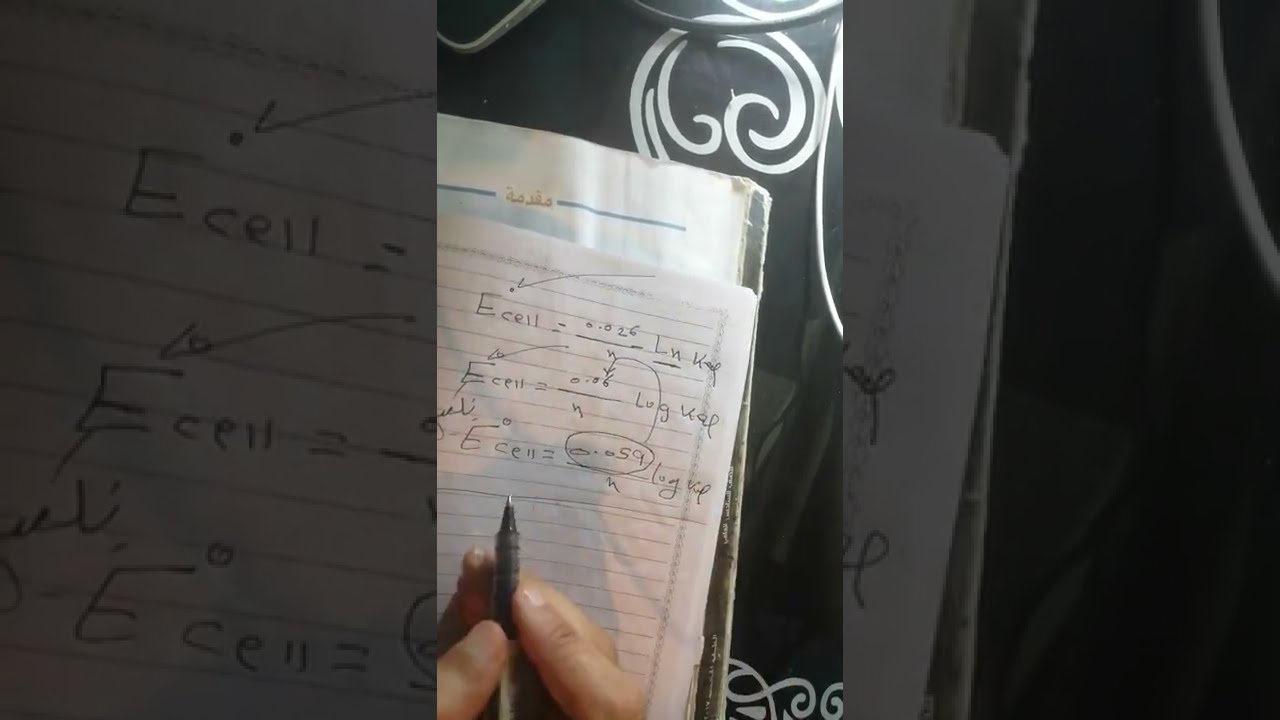 مقدمة
E°cell = 0.026/n Ln Keq
E°cell = 0.06/n Log Keq
E°cell = 0.059/n Log Keq